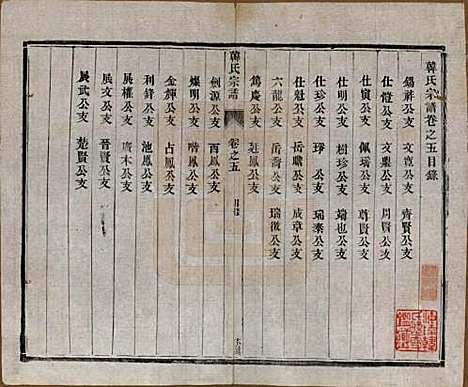 韓氏宗譜卷之五目錄
錫祥公支 文寬公支 齊賢公支
仕愷公支 文藻公支
仕寅公支 佩瑞公支 尊賢公支
仕明公支 樹珍公支 端也公支
仕珍公支 琈公支 瑞泰公支
仕魁公支 岳驤公支 成章公支
六龍公支 岳壽公支 瑞徵公支
篤慶公支 廷鳳公支
韓氏宗譜 卷之五 目錄
劍源公支 西鳳公支
燦明公支 岐鳳公支
金輝公支 占鳳公支
利鋒公支 池鳳公支
展權公支 廣木公支
展文公支 晉賢公支
展武公支 楚賢公支